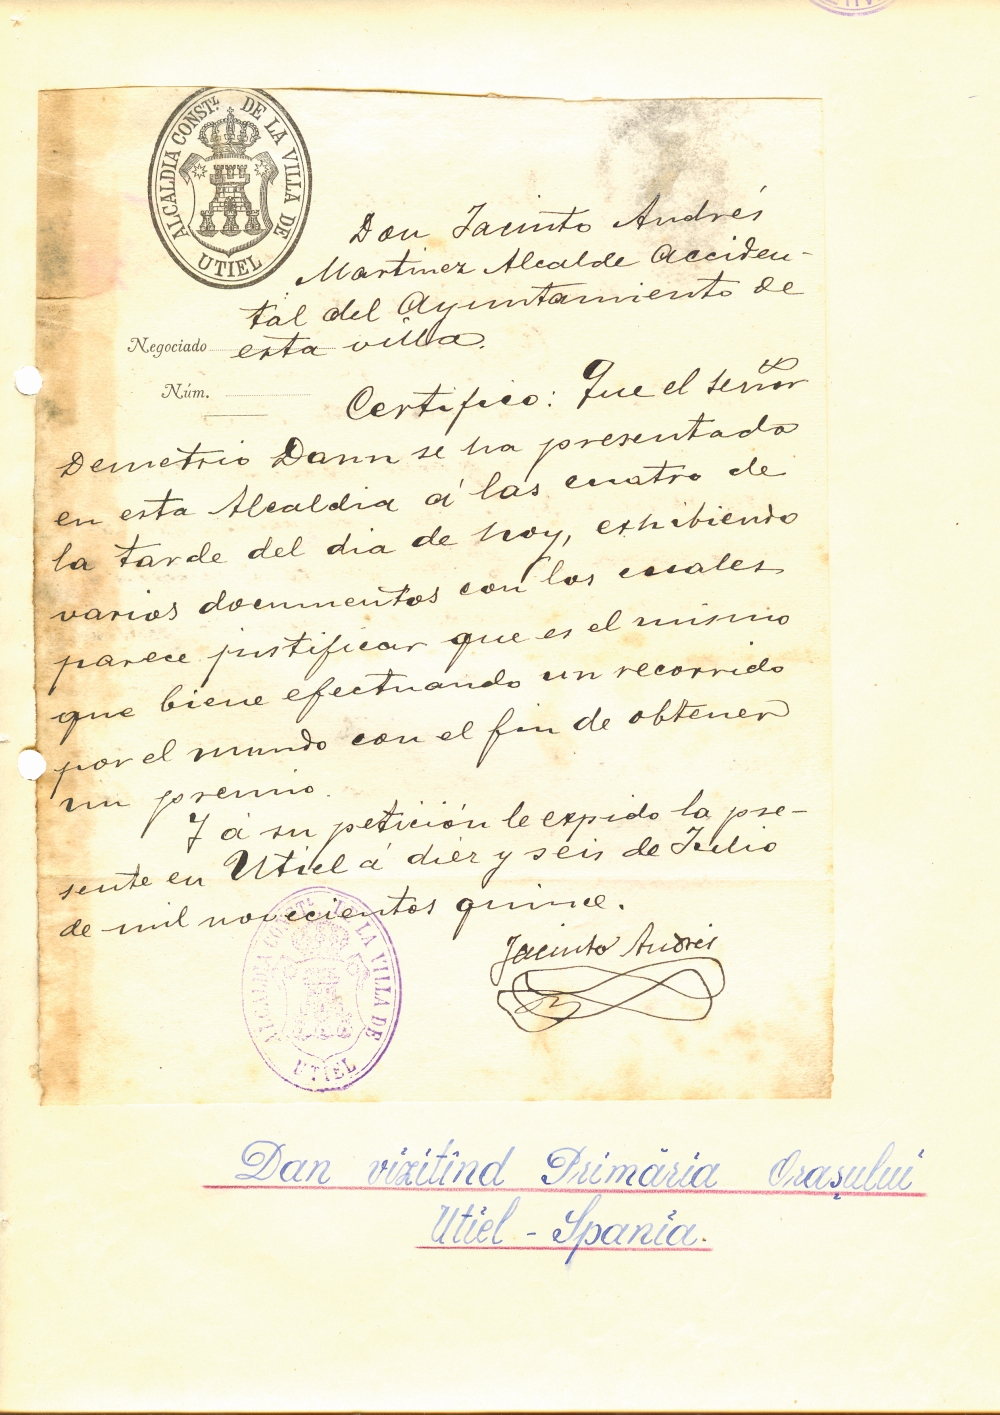 ALCALDIA CONST.ᴸ DE LA VILLA DE UTIEL
Don Jacinto Andrés
Martinez Alcalde Acciden-
tal del Ayuntamiento de
Negociado
esta villa.
Núm.
Certifico: Que el señor
Demetrio Dann se ha presentado
en esta Alcaldia á las cuatro de
la tarde del dia de hoy, exhibiendo
varios documentos con los cuales
parece justificar que es el mismo
que biene efectuando un recorrido
por el mundo con el fin de obtener
un premio.
Y á su petición le expido la pre-
sente en Utiel á diéz y seis de Julio
de mil novecientos quince.
Jacinto Andrés
ALCALDIA CONST.ᴸ DE LA VILLA DE UTIEL
Dan vizitînd Primăria Orașului
Utiel - Spania.